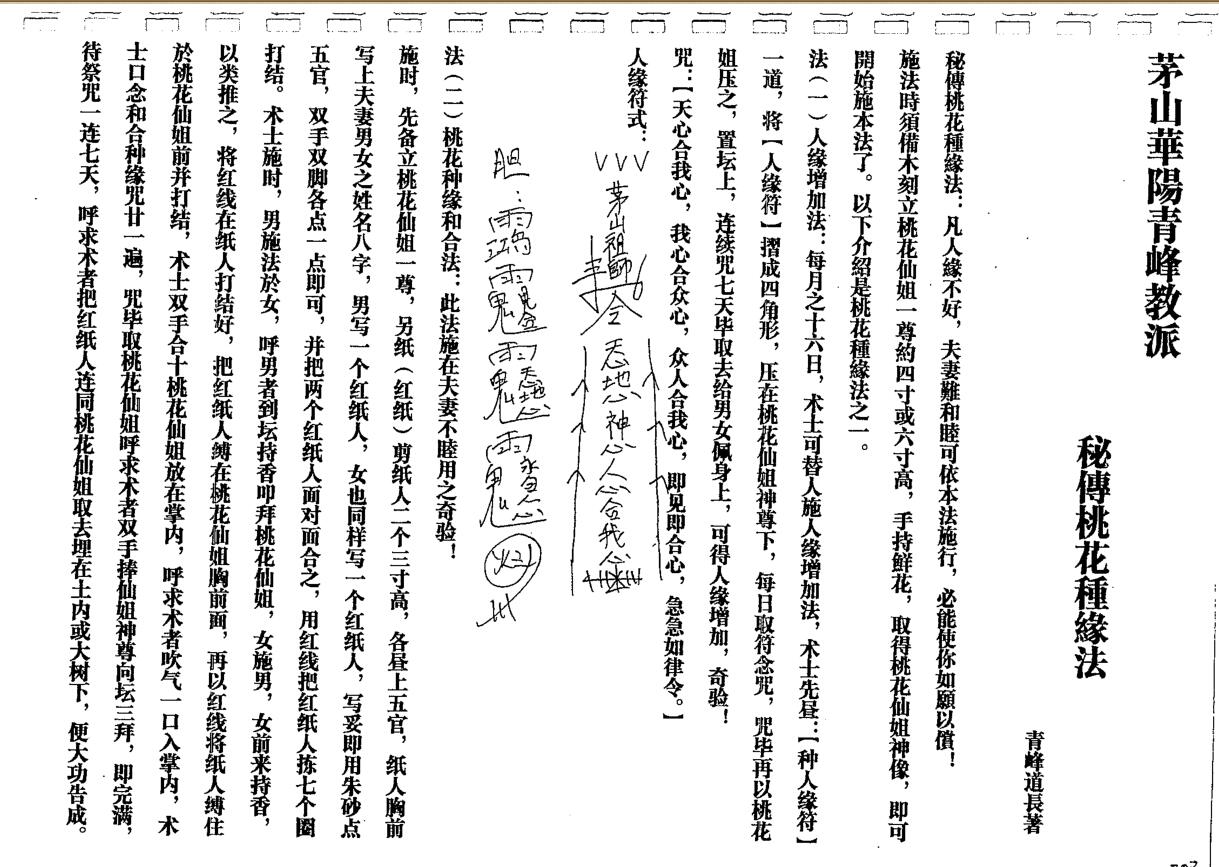 茅山華陽青峰教派
秘傳桃花種緣法
青峰道長著
秘傳桃花種緣法：凡人緣不好，夫妻難和睦可依本法施行，必能使你如願以償！
施法時須備木刻立桃花仙姐一尊約四寸或六寸高，手持鮮花，取得桃花仙姐神像，即可
開始施本法了。以下介紹是桃花種緣法之一。
法（一）人缘增加法：每月之十六日，术士可替人施人缘增加法，术士先昼：【种人缘符】
一道，将【人缘符】摺成四角形，压在桃花仙姐神尊下，每日取符念咒，咒毕再以桃花
姐压之，置坛上，连续咒七天毕取去给男女佩身上，可得人缘增加，奇验！
咒：【天心合我心，我心合众心，众人合我心，即见即合心，急急如律令。】
人缘符式：
茅山祖師
令
地 神 人 合我心
胆：
法（二）桃花种缘和合法：此法施在夫妻不睦用之奇验！
施时，先备立桃花仙姐一尊，另纸（红纸）剪纸人二个三寸高，各昼上五官，纸人胸前
写上夫妻男女之姓名八字，男写一个红纸人，女也同样写一个红纸人，写妥即用朱砂点
五官，双手双脚各点一点即可，并把两个红纸人面对面合之，用红线把红纸人拣七个圈
打结。术士施时，男施法於女，呼男者到坛持香叩拜桃花仙姐，女施男，女前来持香，
以类推之，将红线在纸人打结好，把红纸人缚在桃花仙姐胸前面，再以红线将纸人缚住
於桃花仙姐前并打结，术士双手合十桃花仙姐放在掌内，呼求术者吹气一口入掌内，术
士口念和合种缘咒廿一遍，咒毕取桃花仙姐呼求术者双手捧仙姐神尊向坛三拜，即完满，
待祭咒一连七天，呼求术者把红纸人连同桃花仙姐取去埋在土内或大树下，便大功告成。